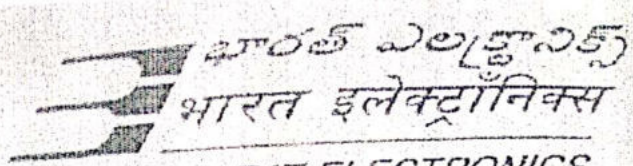 భారత్ ఎలక్ట్రానిక్స్
भारत इलेक्ट्रॉनिक्स
ELECTRONICS